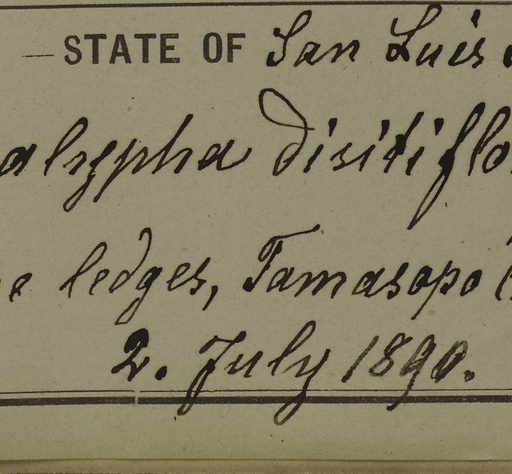 — STATE OF San Luis
alypha disitiflo
ledges, Tamasopo
2. July 1890.